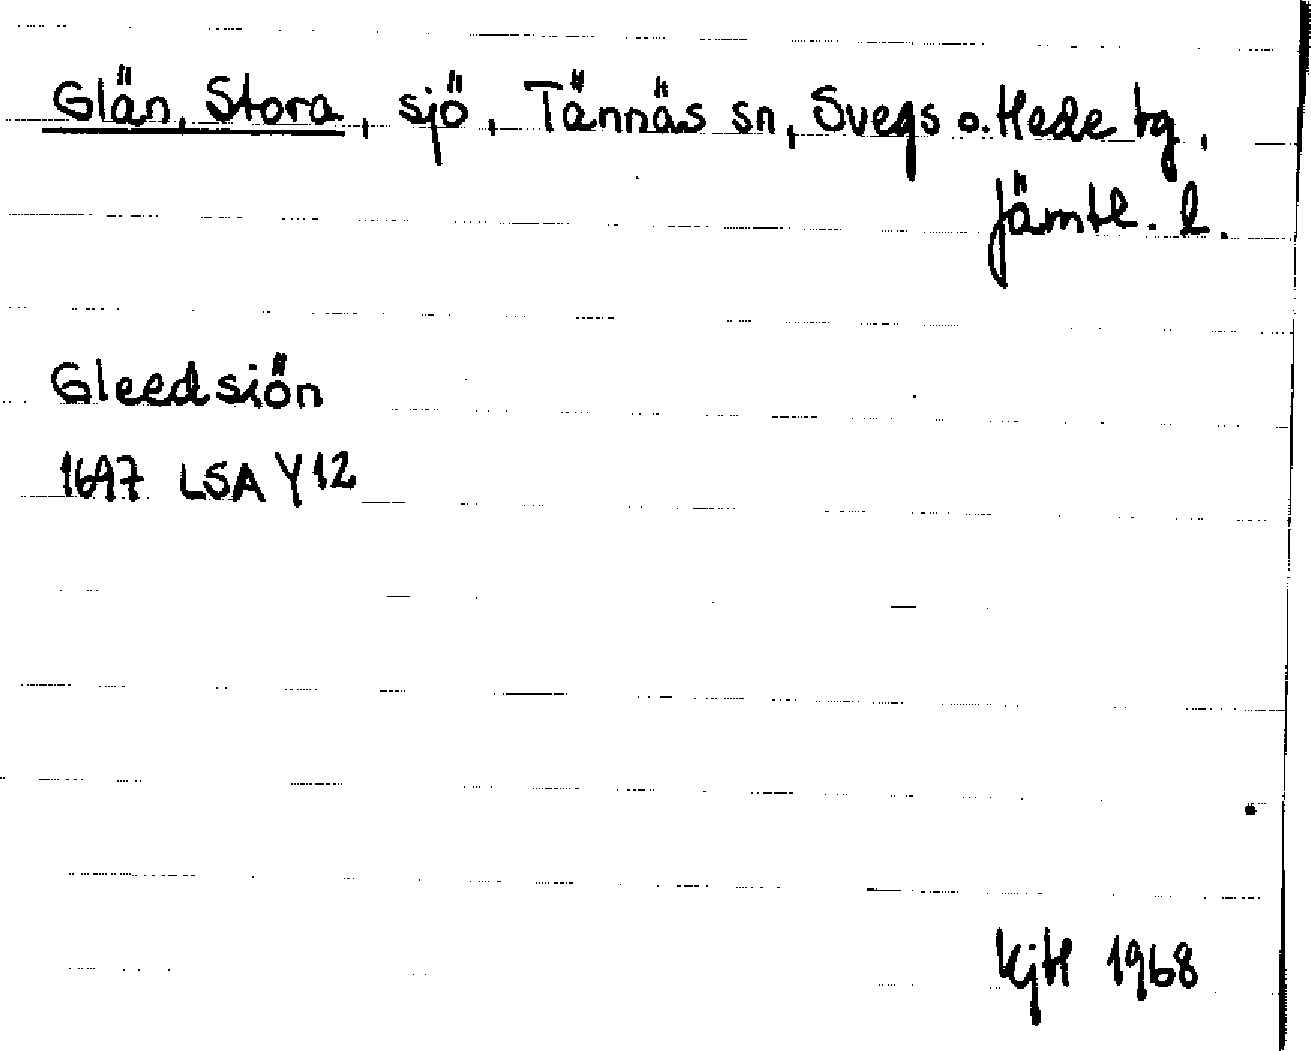 Glän, Stora, sjö, Tännäs sn, Svegs o. Hede tg,
Jämtl. l.
Gleedsiön
1697 LSA Y12
KjH 1968